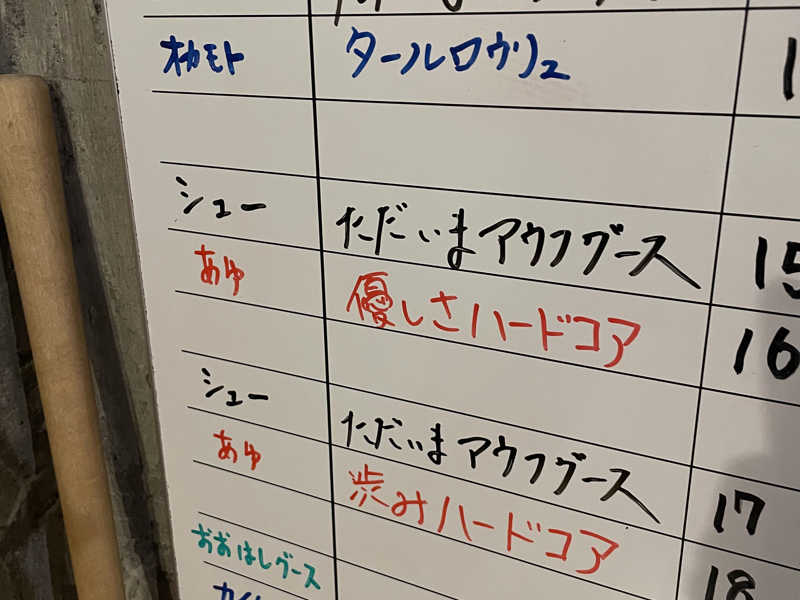 オカモト タールロウリュ 1
シュー ただいまアウフグース 15
あゆ 優しさハードコア 16
シュー ただいまアウフグース 17
あゆ 歩みハードコア 18
おおはしグース